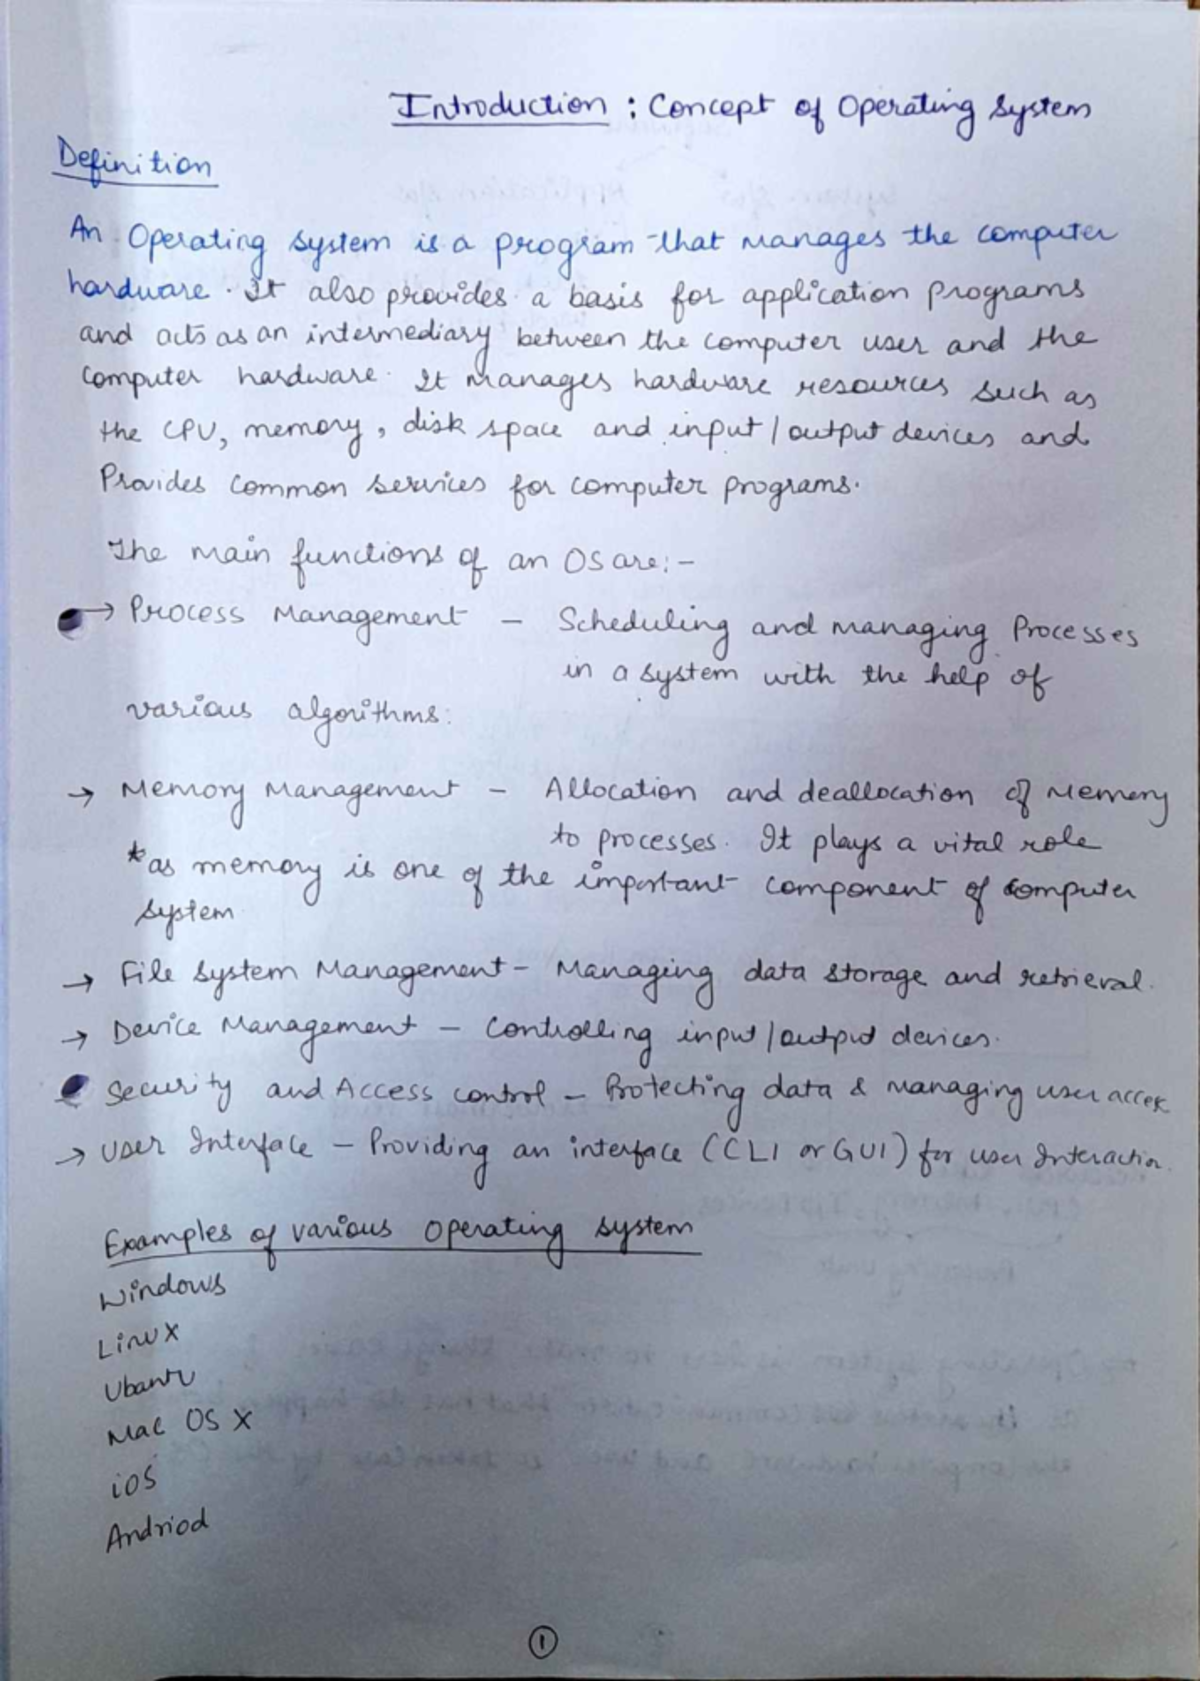 Introduction : Concept of Operating System
Definition
An Operating System is a program that manages the computer
hardware. It also provides a basis for application programs
and acts as an intermediary between the computer user and the
Computer hardware. It manages hardware resources such as
the CPU, memory, disk space and input/output devices and
Provides Common services for computer programs.
The main functions of an OS are:-
→ Process Management - Scheduling and managing Processes
in a system with the help of
various algorithms:
→ Memory Management - Allocation and deallocation of Memory
to processes. It plays a vital role
*as memory is one of the important component of computer
system
→ File System Management - Managing data storage and retrieval.
→ Device Management - Controlling input/output devices.
Security and Access control - Protecting data & managing user acces
→ User Interface - Providing an interface (CLI or GUI) for user Interaction.
Examples of various Operating system
Windows
Linux
Ubantu
Mac OS X
iOS
Andriod
1